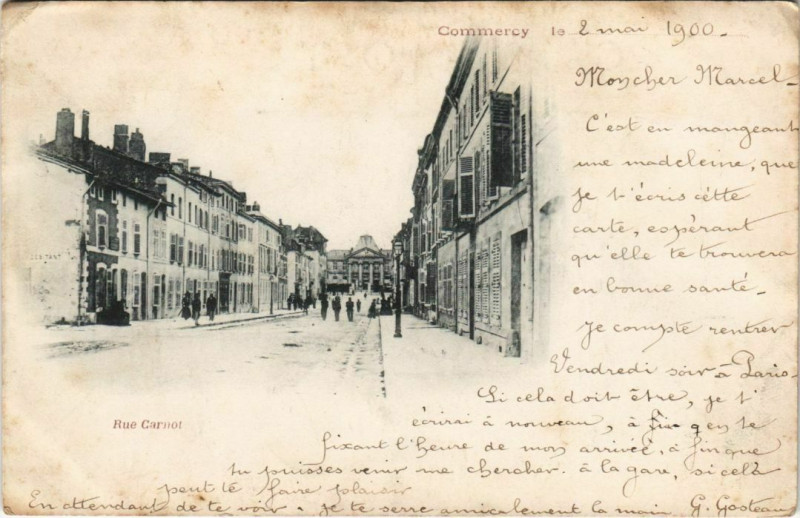 Commercy le 2 mai 1900.
Moncher Marcel_
C'est en mangeant
une madeleine, que
je t'écris cétte
carte, espérant
qu'elle te trouvera
en bonne santé_
Je compte rentrer
Vendredi soir à Paris_
Si cela doit être, je t'
écrirai à nouveau, à fin qen te
fixant l'heure de mon arrivée, à fin que
tu puisses venir me chercher à la gare, si celà
peut té faire plaisir
En attendant de te voir, je te serre amicalement la main G. Gosteau
Rue Carnot